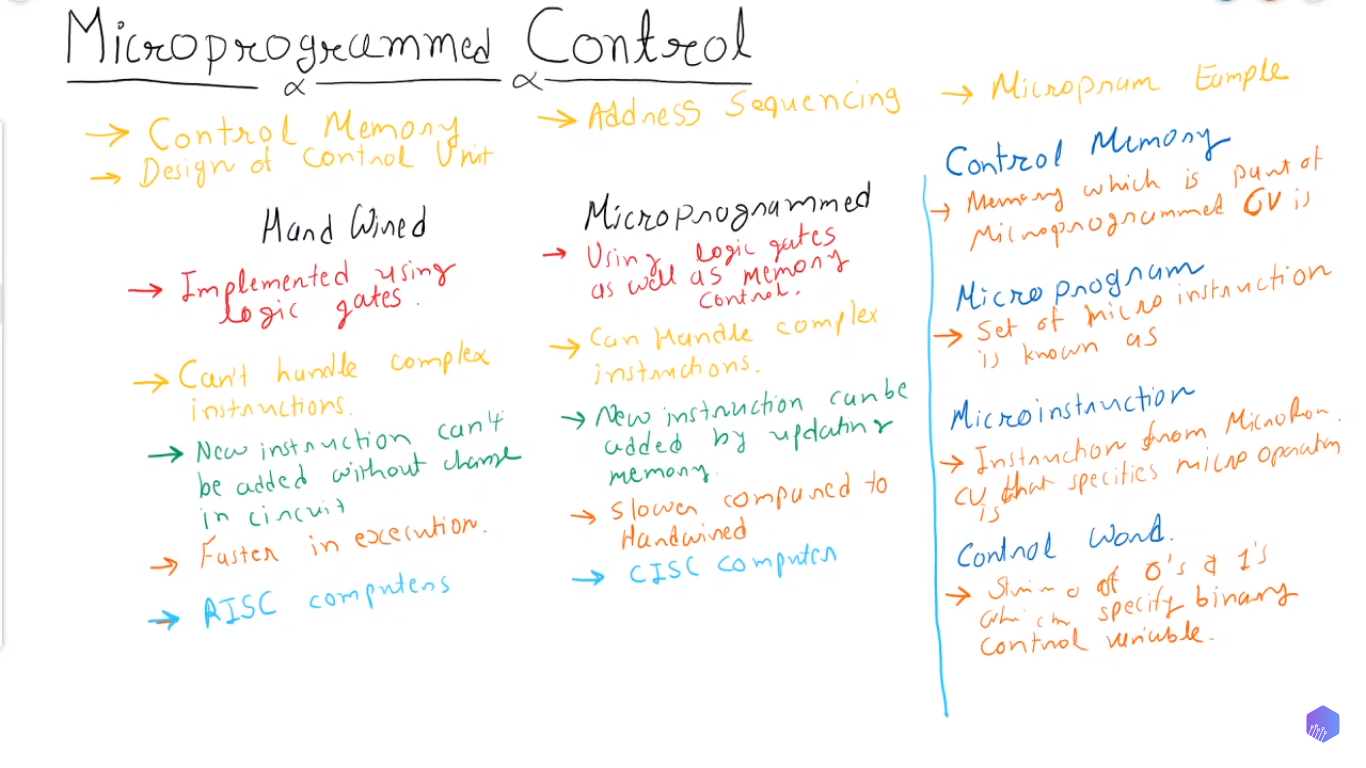 Microprogrammed Control
→ Control Memory
→ Design of Control Unit
→ Address Sequencing
→ Example
Hard Wired
→ Implemented using
logic gates.
→ Can't handle complex
instructions.
→ New instruction can't
be added without change
in circuit
→ Faster in execution.
→ RISC computers
Microprogrammed
→ Using logic gates
as well as memory
control.
→ Can Handle complex
instructions.
→ New instruction can be
added by updating
memory.
→ Slower compared to
Hardwired
→ CISC computer
Control Memory
→ Memory which is part of
Microprogrammed CU is
Microprogram
→ Set of micro instruction
is known as
Microinstruction
→ Instruction from
CU that specifies micro operation
is
Control Word.
→ of 0's & 1's
which specify binary
control variable.